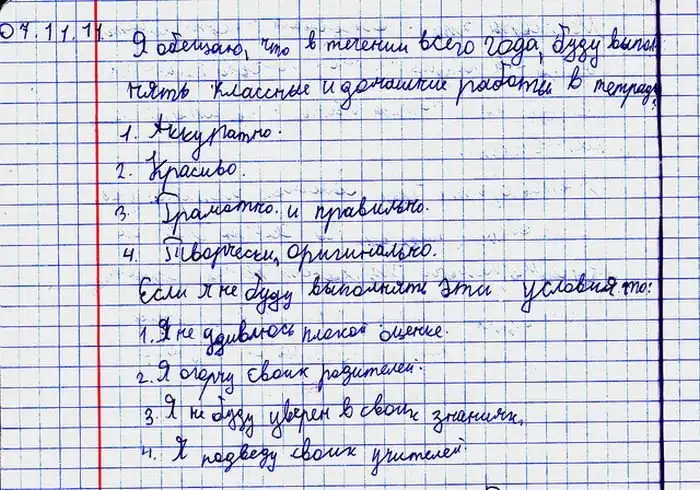 07.11.11.
Я обещаю, что в течении всего года, буду выпол
нять классные и домашние работы в тетради:
1. Аккуратно.
2. Красиво.
3. Грамотно и правильно.
4. Творчески, оригинально.
Если я не буду выполнять эти условия то:
1. Я не удивлюсь плохой оценке.
2. Я огорчу своих родителей.
3. Я не буду уверен в своих знаниях.
4. Я подведу своих учителей.